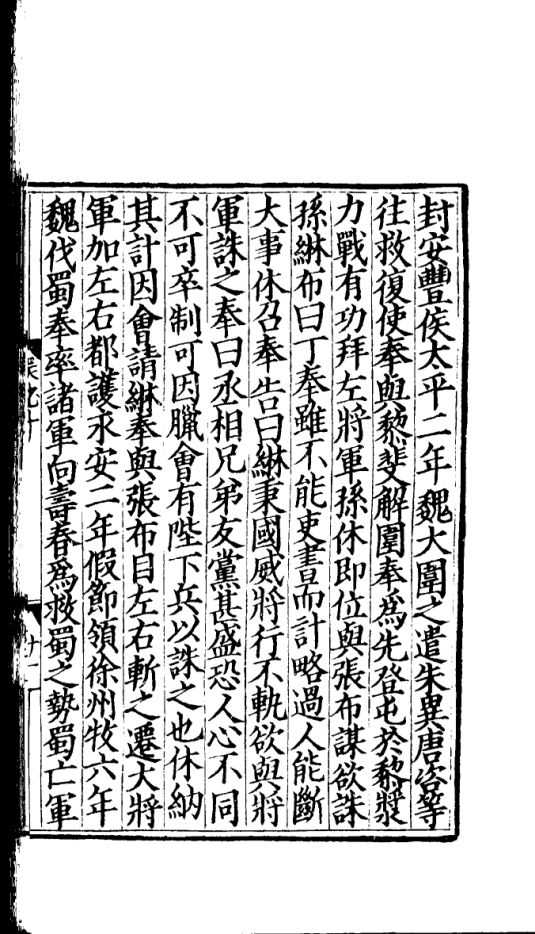 封安豐侯太平二年魏大圍之遣朱異唐咨等
往救復使奉與黎斐解圍奉爲先登屯於黎漿
力戰有功拜左將軍孫休即位與張布謀欲誅
孫綝布曰丁奉雖不能吏書而計略過人能斷
大事休召奉告曰綝秉國威將行不軌欲與將
軍誅之奉曰丞相兄弟友黨甚盛恐人心不同
不可卒制可因臘會有陛下兵以誅之也休納
其計因會請綝奉與張布目左右斬之遷大將
軍加左右都護永安二年假節領徐州牧六年
魏伐蜀奉率諸軍向壽春爲救蜀之勢蜀亡軍